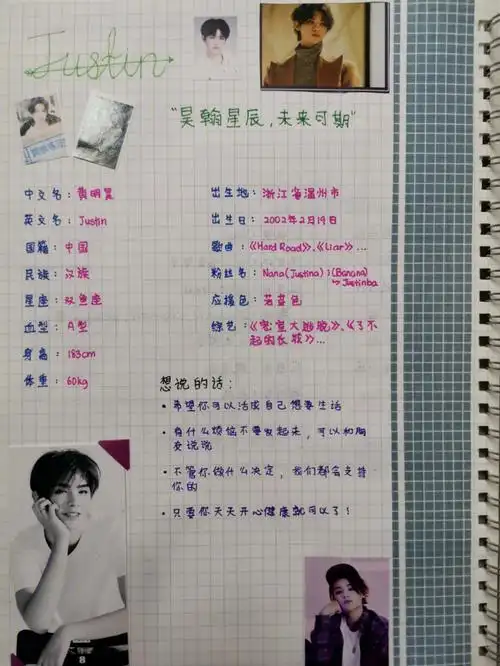 Justin
"昊翰星辰,未来可期"
中文名:黄明昊
英文名:Justin
国籍:中国
民族:汉族
星座:双鱼座
血型:A型
身高:183cm
体重:60kg
出生地:浙江省温州市
出生日:2002年2月19日
歌曲:《Hard Road》、《Liar》...
粉丝名:Nana(Justina);(Banana)
↳Justinba
应援色:若草色
综艺:《密室大逃脱》、《了不
起的长城》...
想说的话:
• 希望你可以活成自己想要生活
• 有什么烦恼不要收起来,可以和朋
友说说
• 不管你做什么决定,我们都会支持
你的
• 只要你天天开心健康就可以了!
8